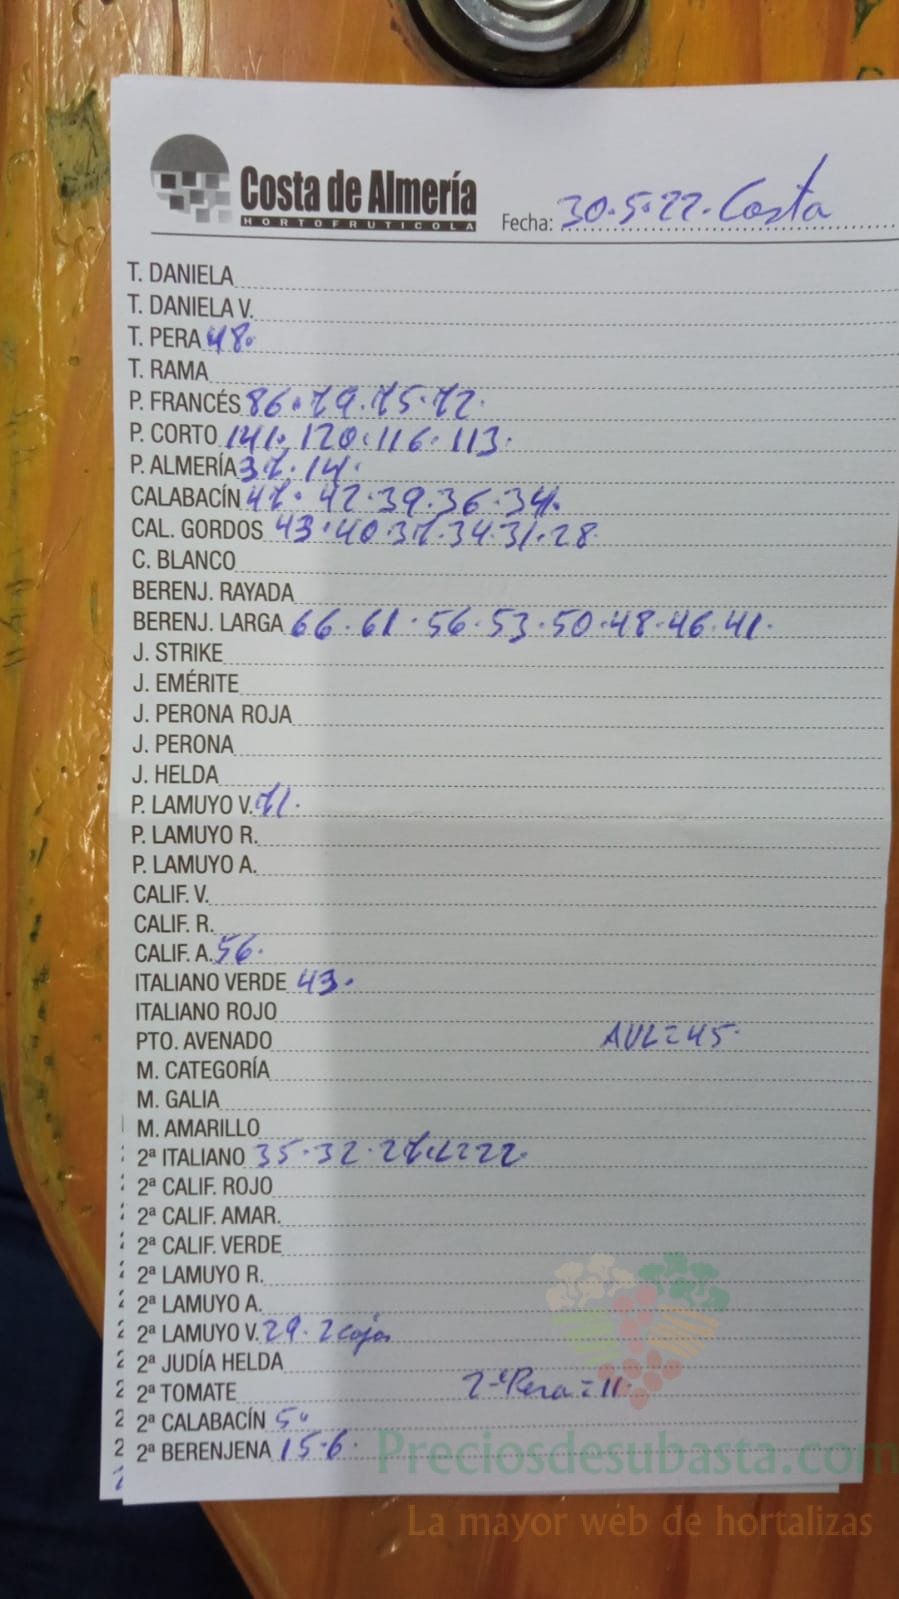 Costa de Almería
HORTOFRUTICOLA
Fecha: 30.5.22. Costa
T. DANIELA
T. DANIELA V.
T. PERA 48.
T. RAMA
P. FRANCÉS 86.79.75.72.
P. CORTO 141.120.116.113.
P. ALMERÍA 37.14.
CALABACÍN 47.42.39.36.34.
CAL. GORDOS 43.40.37.34.31.28
C. BLANCO
BERENJ. RAYADA
BERENJ. LARGA 66.61.56.53.50.48.46.41.
J. STRIKE
J. EMÉRITE
J. PERONA ROJA
J. PERONA
J. HELDA
P. LAMUYO V. 71.
P. LAMUYO R.
P. LAMUYO A.
CALIF. V.
CALIF. R.
CALIF. A. 56.
ITALIANO VERDE 43.
ITALIANO ROJO
PTO. AVENADO AVL=45.
M. CATEGORÍA
M. GALIA
M. AMARILLO
2ª ITALIANO 35.32.27.
2ª CALIF. ROJO
2ª CALIF. AMAR.
2ª CALIF. VERDE
2ª LAMUYO R.
2ª LAMUYO A.
2ª LAMUYO V. 29.2 cajas
2ª JUDÍA HELDA
2ª TOMATE 2ª Pera = 11.
2ª CALABACÍN 5.
2ª BERENJENA 15.6.
Preciosdesubasta.com
La mayor web de hortalizas